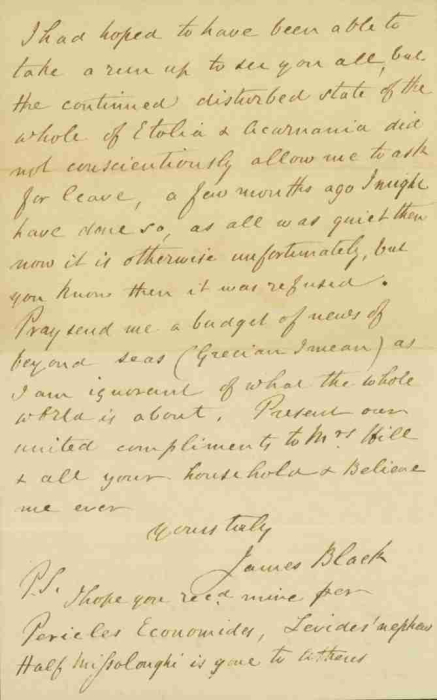 I had hoped to have been able to
take a run up to see you all, but
the continued disturbed state of the
whole of Etolia & Acarnania did
not conscientiously allow me to ask
for leave, a few months ago I might
have done so, as all was quiet then
now it is otherwise unfortunately, but
you know then it was refused.
Pray send me a budget of news of
beyond seas (Grecian I mean) as
I am ignorant of what the whole
world is about. Present our
united compliments to Mrs Hill
& all your household & Believe
me ever
yours truly
James Black
P.S.
I hope you recd mine per
Pericles Economides, Levides' nephew
Half Missolonghi is gone to Athens